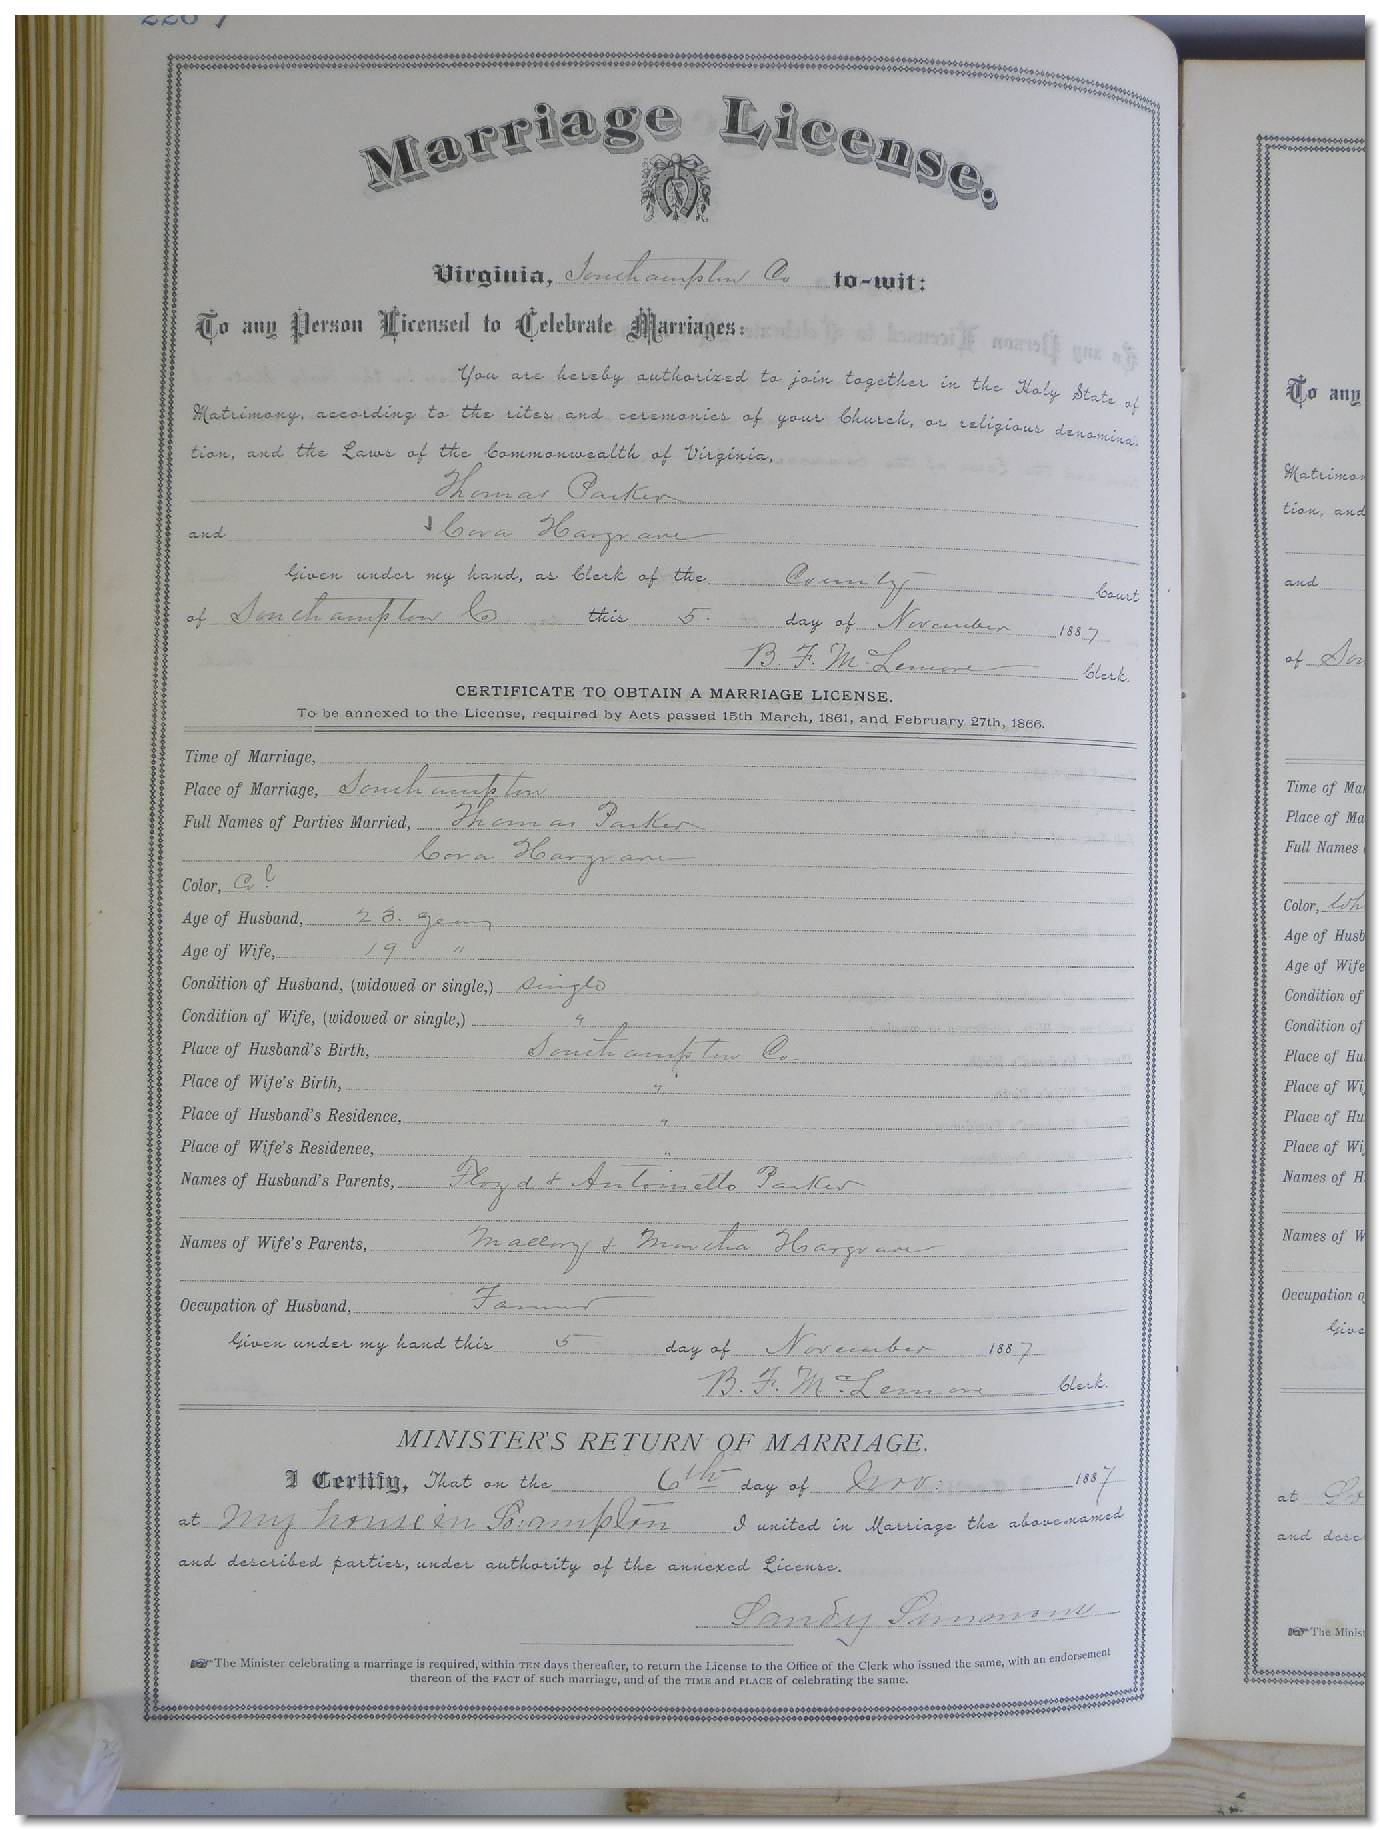 Marriage License.
Virginia, Southampton Co to-wit:
To any Person Licensed to Celebrate Marriages:
You are hereby authorized to join together in the Holy State of
Matrimony, according to the rites and ceremonies of your Church, or religious denomina-
tion, and the Laws of the Commonwealth of Virginia,
Thomas Parker
and Cora Hargrave
Given under my hand, as Clerk of the County Court
of Southampton Co this 5. day of November 1887
B. F. McLemore Clerk.
CERTIFICATE TO OBTAIN A MARRIAGE LICENSE.
To be annexed to the License, required by Acts passed 15th March, 1861, and February 27th, 1866.
Time of Marriage,
Place of Marriage, Southampton
Full Names of Parties Married, Thomas Parker
Cora Hargrave
Color, Col
Age of Husband, 23. years
Age of Wife, 19 "
Condition of Husband, (widowed or single,) single
Condition of Wife, (widowed or single,) "
Place of Husband's Birth, Southampton Co.
Place of Wife's Birth, "
Place of Husband's Residence, "
Place of Wife's Residence, "
Names of Husband's Parents, Floyd & Antoinette Parker
Names of Wife's Parents, Mallory & Martha Hargrave
Occupation of Husband, Farmer
Given under my hand this 5 day of November 1887
B. F. McLemore Clerk.
MINISTER'S RETURN OF MARRIAGE.
I Certify, That on the 6th day of Nov. 1887
at My house in So:ampton I united in Marriage the above-named
and described parties, under authority of the annexed License.
Sandy Simmons
☞ The Minister celebrating a marriage is required, within TEN days thereafter, to return the License to the Office of the Clerk who issued the same, with an endorsement
thereon of the FACT of such marriage, and of the TIME and PLACE of celebrating the same.
To any
Matrimon
tion, and
and
of Sou
Time of Ma
Place of Ma
Full Names
Color, Wh
Age of Husb
Age of Wife
Condition of
Condition of
Place of Hu
Place of Wi
Place of Hu
Place of Wi
Names of H
Names of W
Occupation o
Give
at So
and desc
☞ The Minis